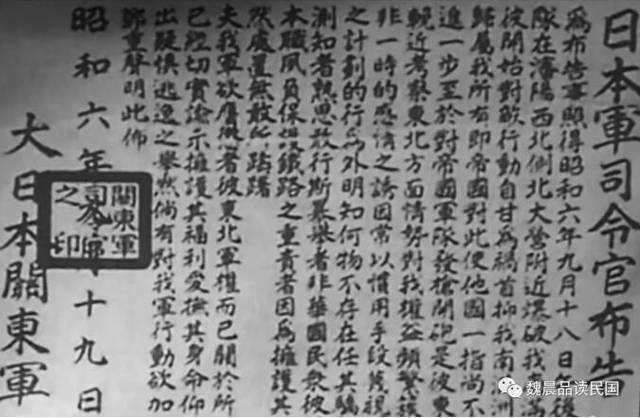 日本軍司令官布告
為布告事照得昭和六年九月十八日午
隊在瀋陽西北側北大營附近爆破我南
彼開始對敵行動自甘為禍首抑我南滿洲
歸屬我所有即帝國對此使他國一指尚不
進一步至於對帝國軍隊發槍開砲是彼東
輓近考察東北方面情勢對我權益頻繁
非一時的感情之誘因常以慣用手段蔑視
之計劃的行為外明知何物不存在任其驕
測知者熟思敢行斯暴舉者非華國民衆彼
本職夙負保護鐵路之重責者因為擁護其
然處置無敢所躊躇
夫我軍欲膺懲者彼東北軍權而已關於所
已經切實諭示擁護其福利愛撫其身命仰
出疑惧逃逸之舉然倘有對我軍行動欲加
鄭重聲明此佈
昭和六年 月十九日
大日本關東軍
關東軍
司令官
之印
魏晨品读民国